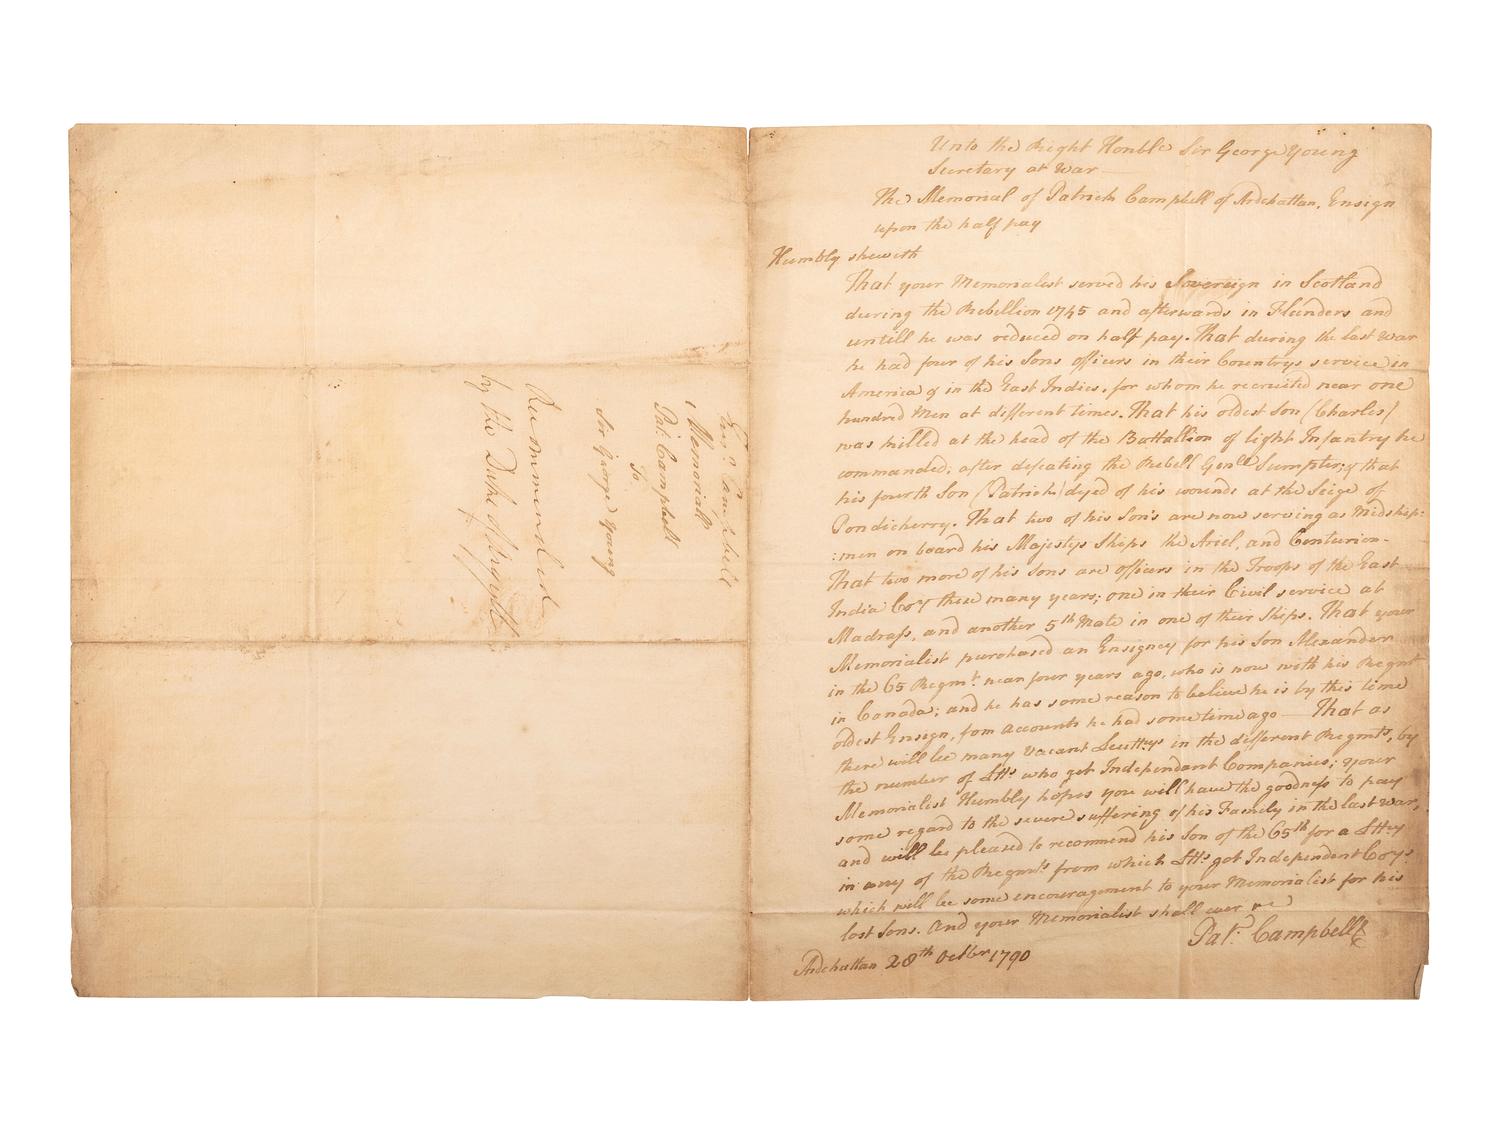 Ensn Campbell
Memoriall
Pat: Campbell
To
Sir George Young
Recommended
by the Duke of Argyll
Unto the Right Honble Sir George Young
Secretary at War
The Memorial of Patrick Campbell of Ardchattan, Ensign
upon the half pay
Humbly sheweth
That your Memorialist served his Sovereign in Scotland
during the Rebellion 1745 and afterwards in Flanders and
untill he was reduced on half pay. That during the last War
he had four of his Sons officers in their Countrys service in
America & in the East Indies, for whom he recruited near one
hundred Men at different times. That his oldest Son (Charles)
was killed at the head of the Battallion of light Infantry he
commanded, after defeating the Rebell Genll Sumpter; & that
his fourth Son (Patrick) dyed of his wounds at the Seige of
Pondicherry. That two of his Son's are now serving as Midship:
:men on board his Majestys Ships the Ariel, and Centurion-
That two more of his Sons are officers in the Troops of the East
India Coy these many years; one in their Civil service at
Madrass, and another 5th Mate in one of their Ships. That your
Memorialist purchased an Ensigncy for his Son Alexander
in the 65 Regmt. near four years ago, who is now with his Regmt
in Canada; and he has some reason to believe he is by this time
oldest Ensign, fom accounts he had some time ago — That as
there will be many vacant Leuttys in the different Regmts, by
the number of Ltts who got Independant Companies; your
Memorialist Humbly hopes you will have the goodness to pay
some regard to the severe suffering of his Family in the last war,
and will be pleased to recommend his Son of the 65th for a Lttcy
in any of the Regmts from which Ltts got Independent Coys.
which will be some encouragement to your Memorialist for his
lost Sons. And your Memorialist shall ever
Pat. Campbell
Ardchattan 28th Octbr 1790